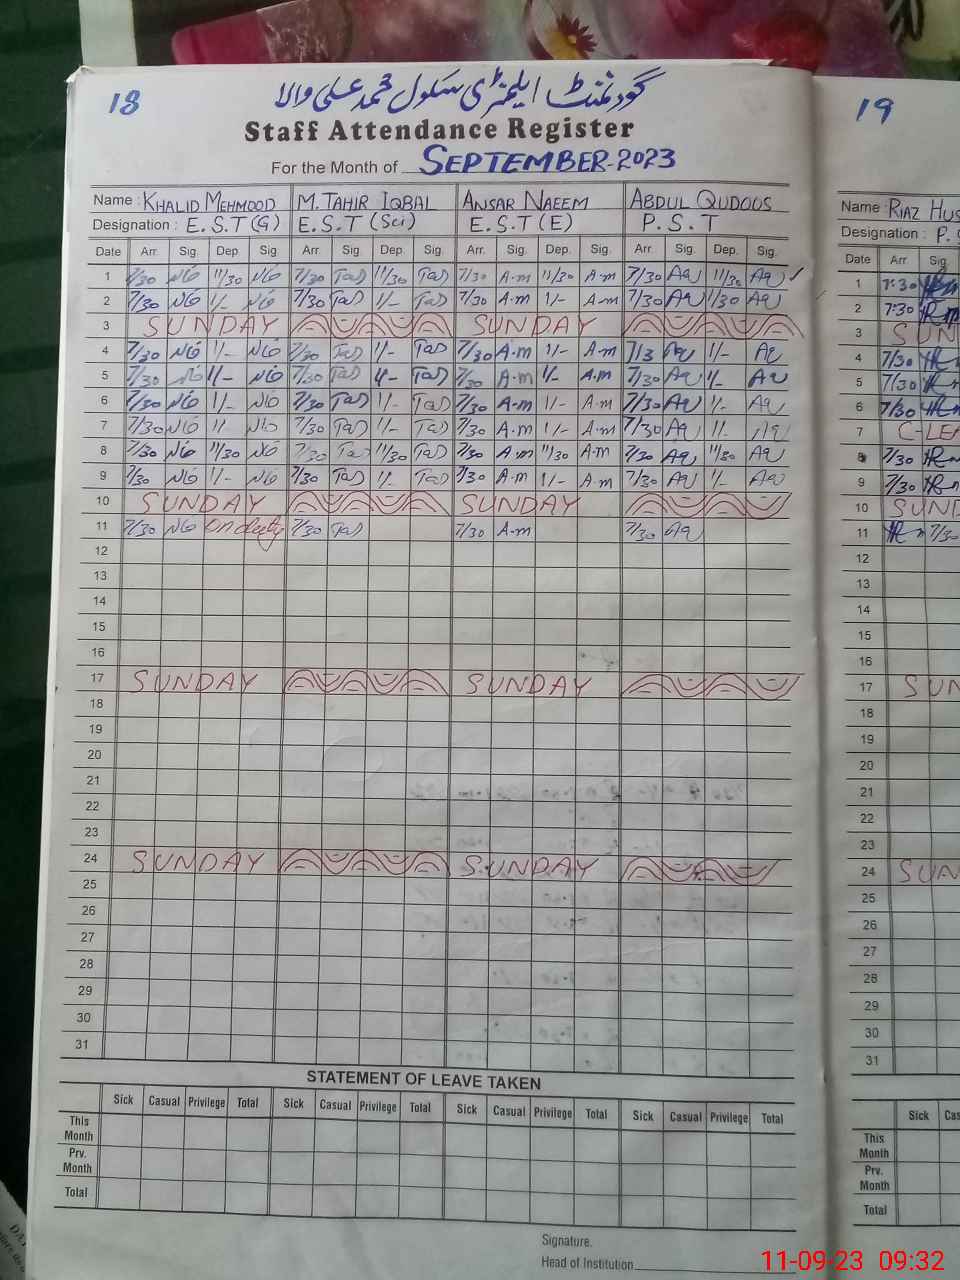 18
گورنمنٹ ایلیمنٹری سکول محمد علی والا
Staff Attendance Register
For the Month of SEPTEMBER-2023
Name : KHALID MEHMOOD M. TAHIR IQBAL ANSAR NAEEM ABDUL QUDOOS
Designation : E.S.T (G) E.S.T (Sci) E.S.T (E) P.S.T
Date Arr. Sig. Dep. Sig. Arr. Sig. Dep. Sig. Arr. Sig. Dep. Sig. Arr. Sig. Dep. Sig.
1 7/30 11/30 7/30 11/30 7/30 A.m 11/30 A.m 7/30 Aq 11/30 Aq
2 7/30 1/- 7/30 1/- 7/30 A.m 1/- A.m 7/30 Aq 1/30 Aq
3 SUNDAY SUNDAY
4 7/30 1/- 7/30 1/- 7/30 A.m 1/- A.m 7/3 Aq 1/- Aq
5 7/30 1/- 7/30 1/- 7/30 A.m 1/- A.m 7/30 Aq 1/- Aq
6 7/30 1/- 7/30 1/- 7/30 A.m 1/- A.m 7/30 Aq 1/- Aq
7 7/30 1/- 7/30 1/- 7/30 A.m 1/- A.m 7/30 Aq 1/- Aq
8 7/30 11/30 7/30 11/30 7/30 A.m 11/30 A.m 7/30 Aq 11/30 Aq
9 7/30 1/- 7/30 1/- 7/30 A.m 1/- A.m 7/30 Aq 1/- Aq
10 SUNDAY SUNDAY
11 7/30 on duty 7/30 7/30 A.m 7/30 Aq
12
13
14
15
16
17 SUNDAY SUNDAY
18
19
20
21
22
23
24 SUNDAY SUNDAY
25
26
27
28
29
30
31
STATEMENT OF LEAVE TAKEN
Sick Casual Privilege Total Sick Casual Privilege Total Sick Casual Privilege Total Sick Casual Privilege Total
This Month
Prv. Month
Total
Signature.
Head of Institution
19
Name : RIAZ HUS
Designation : P.
Date Arr. Sig.
1 7:30
2 7:30
3 SUN
4 7/30
5 7/30
6 7/30
7 C-LEA
8 7/30
9 7/30
10 SUND
11 7/30
12
13
14
15
16
17 SUN
18
19
20
21
22
23
24 SUN
25
26
27
28
29
30
31
Sick Cas
This Month
Prv. Month
Total
11-09-23 09:32